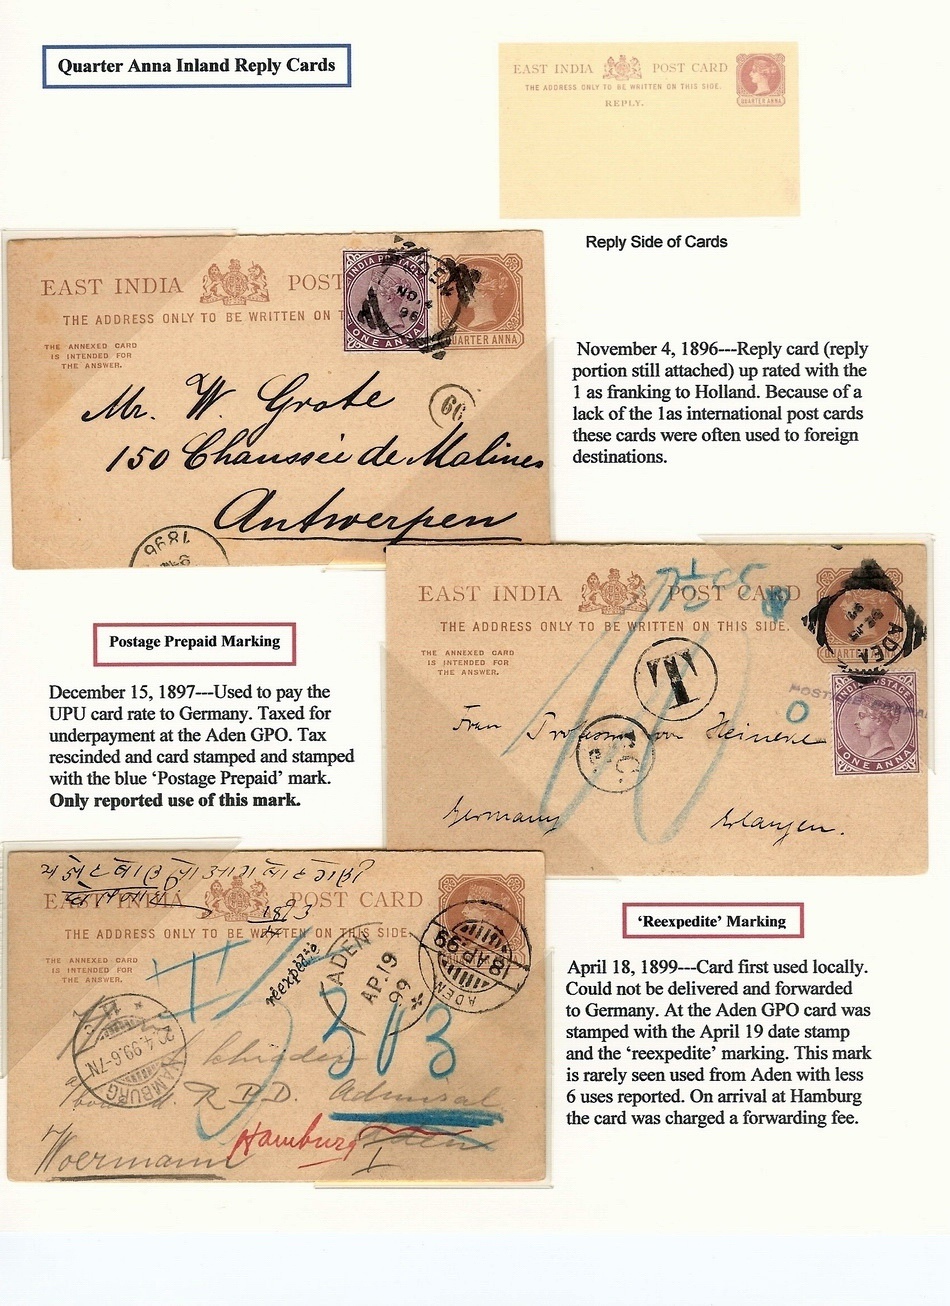 Quarter Anna Inland Reply Cards
EAST INDIA POST CARD
THE ADDRESS ONLY TO BE WRITTEN ON THIS SIDE.
REPLY.
QUARTER ANNA
Reply Side of Cards
EAST INDIA POST
THE ADDRESS ONLY TO BE WRITTEN ON T
THE ANNEXED CARD
IS INTENDED FOR
THE ANSWER.
INDIA POSTAGE
ONE ANNA
QUARTER ANNA
NO.4
96
66
Mr. W. Grote
150 Chaussée de Malines
Antwerpen
1896
November 4, 1896---Reply card (reply
portion still attached) up rated with the
1 as franking to Holland. Because of a
lack of the 1as international post cards
these cards were often used to foreign
destinations.
EAST INDIA POST CARD
THE ADDRESS ONLY TO BE WRITTEN ON THIS SIDE.
THE ANNEXED CARD
IS INTENDED FOR
THE ANSWER.
QUARTER ANNA
ADEN
T
INDIA POSTAGE
ONE ANNA
Frau Professor von Heineke
Germany Erlangen.
Postage Prepaid Marking
December 15, 1897---Used to pay the
UPU card rate to Germany. Taxed for
underpayment at the Aden GPO. Tax
rescinded and card stamped and stamped
with the blue ‘Postage Prepaid’ mark.
Only reported use of this mark.
EAST INDIA POST CARD
THE ADDRESS ONLY TO BE WRITTEN ON THIS SIDE.
THE ANNEXED CARD
IS INTENDED FOR
THE ANSWER.
réexpédié
ADEN
AP.19
99
ADEN
18 AP.99
303
HAMBURG
20.4.99.6-7N
R.P.D. Admiral
Hamburg Aden
Woermann
‘Reexpedite’ Marking
April 18, 1899---Card first used locally.
Could not be delivered and forwarded
to Germany. At the Aden GPO card was
stamped with the April 19 date stamp
and the ‘reexpedite’ marking. This mark
is rarely seen used from Aden with less
6 uses reported. On arrival at Hamburg
the card was charged a forwarding fee.